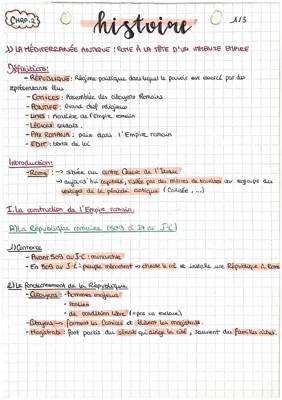 CHAP. 2
histoire
1/3
1) LA MÉDITERRANÉE ANTIQUE : ROME À LA TÊTE D'UN IMMENSE EMPIRE
Définitions :
- RÉPUBLIQUE : Régime politique dans lequel le pouvoir est exercé par des
représentants élus.
- COMICES : Assemblée des citoyens Romains.
- PONTIFE : Grand chef religieux
- LIMES : Frontière de l'Empire romain
- LÉGION : soldats.
- PAX ROMANA : paix dans l'Empire romain
- ÉDIT : texte de loi
Introduction :
- Rome : → située au centre Ouest de l'Italie
→ aujourd'hui capitale, visitée par des milliers de touristes qui
vestiges de la période antique (Colisée, ...)
I. La construction de l'Empire romain.
A) La République romaine (509 à 27 av J-C)
1) Contexte
- Avant 509 av J-C : monarchie
- En 509 av J-C : peuple mécontent → chasse le roi et installe une République à Rome
2) Le fonctionnement de la République
- Citoyens : - hommes majeurs
- Italien
- de condition libre (≠ pas un esclave)
- Citoyens → forment les Comices et élisent les magistrats.
- Magistrats : font partis du sénat qui dirige la cité, souvent des familles riches.